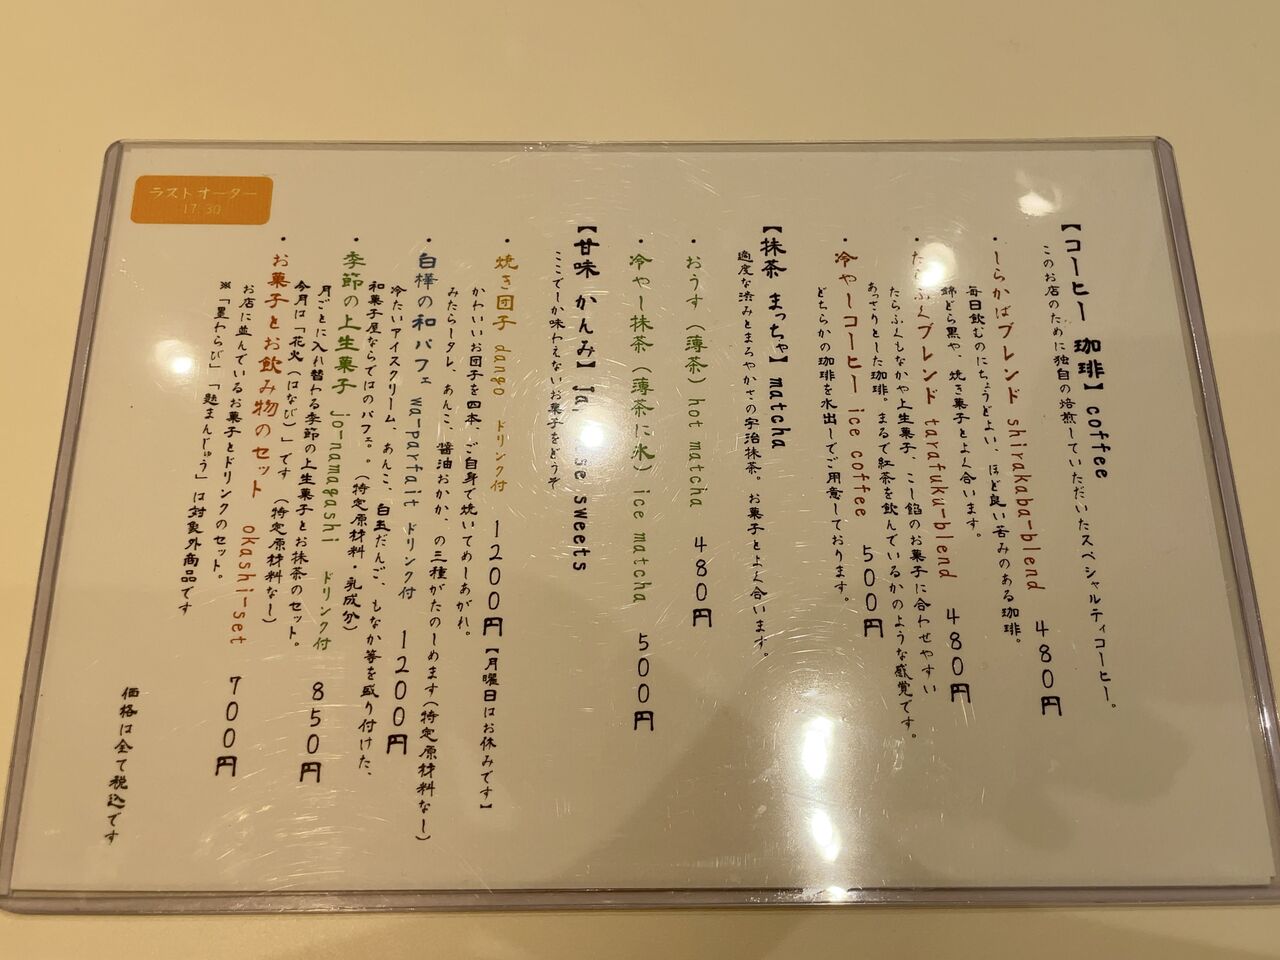 【コーヒー 珈琲】coffee
このお店のために独自の焙煎していただいたスペシャルティコーヒー。
・しらかばブレンド shirakaba-blend 480円
毎日飲むのにちょうどよい、ほど良い苦みのある珈琲。
錦どら黒や、焼き菓子とよく合います。
・たらふくブレンド tarafuku-blend 480円
たらふくもなかや上生菓子、こし餡のお菓子に合わせやすい
あっさりとした珈琲。まるで紅茶を飲んでいるかのような感覚です。
・冷やしコーヒー ice coffee 500円
どちらかの珈琲を水出しでご用意しております。
【抹茶 まっちゃ】matcha
適度な渋みとまろやかさの宇治抹茶。お菓子とよく合います。
・おうす（薄茶）hot matcha 480円
・冷やし抹茶（薄茶に氷）ice matcha 500円
【甘味 かんみ】Ja se sweets
ここでしか味わえないお菓子をどうぞ
・焼き団子 dango ドリンク付 1200円【月曜日はお休みです】
かわいいお団子を四本、ご自身で焼いてめしあがれ。
みたらしタレ、あんこ、醤油おかか、の三種がたのしめます（特定原材料なし）
・白樺の和パフェ wa-parfait ドリンク付 1200円
冷たいアイスクリーム、あんこ、白玉だんご、もなか等を盛り付けた、
和菓子屋ならではのパフェ。。（特定原材料・乳成分）
・季節の上生菓子 jo-namagashi ドリンク付 850円
月ごとに入れ替わる季節の上生菓子とお抹茶のセット。
今月は「花火（はなび）」です（特定原材料なし）
・お菓子とお飲み物のセット okashi-set 700円
お店に並んでいるお菓子とドリンクのセット。
※「星わらび」「麩まんじゅう」は対象外商品です
価格は全て税込です
ラストオーダー
17:30